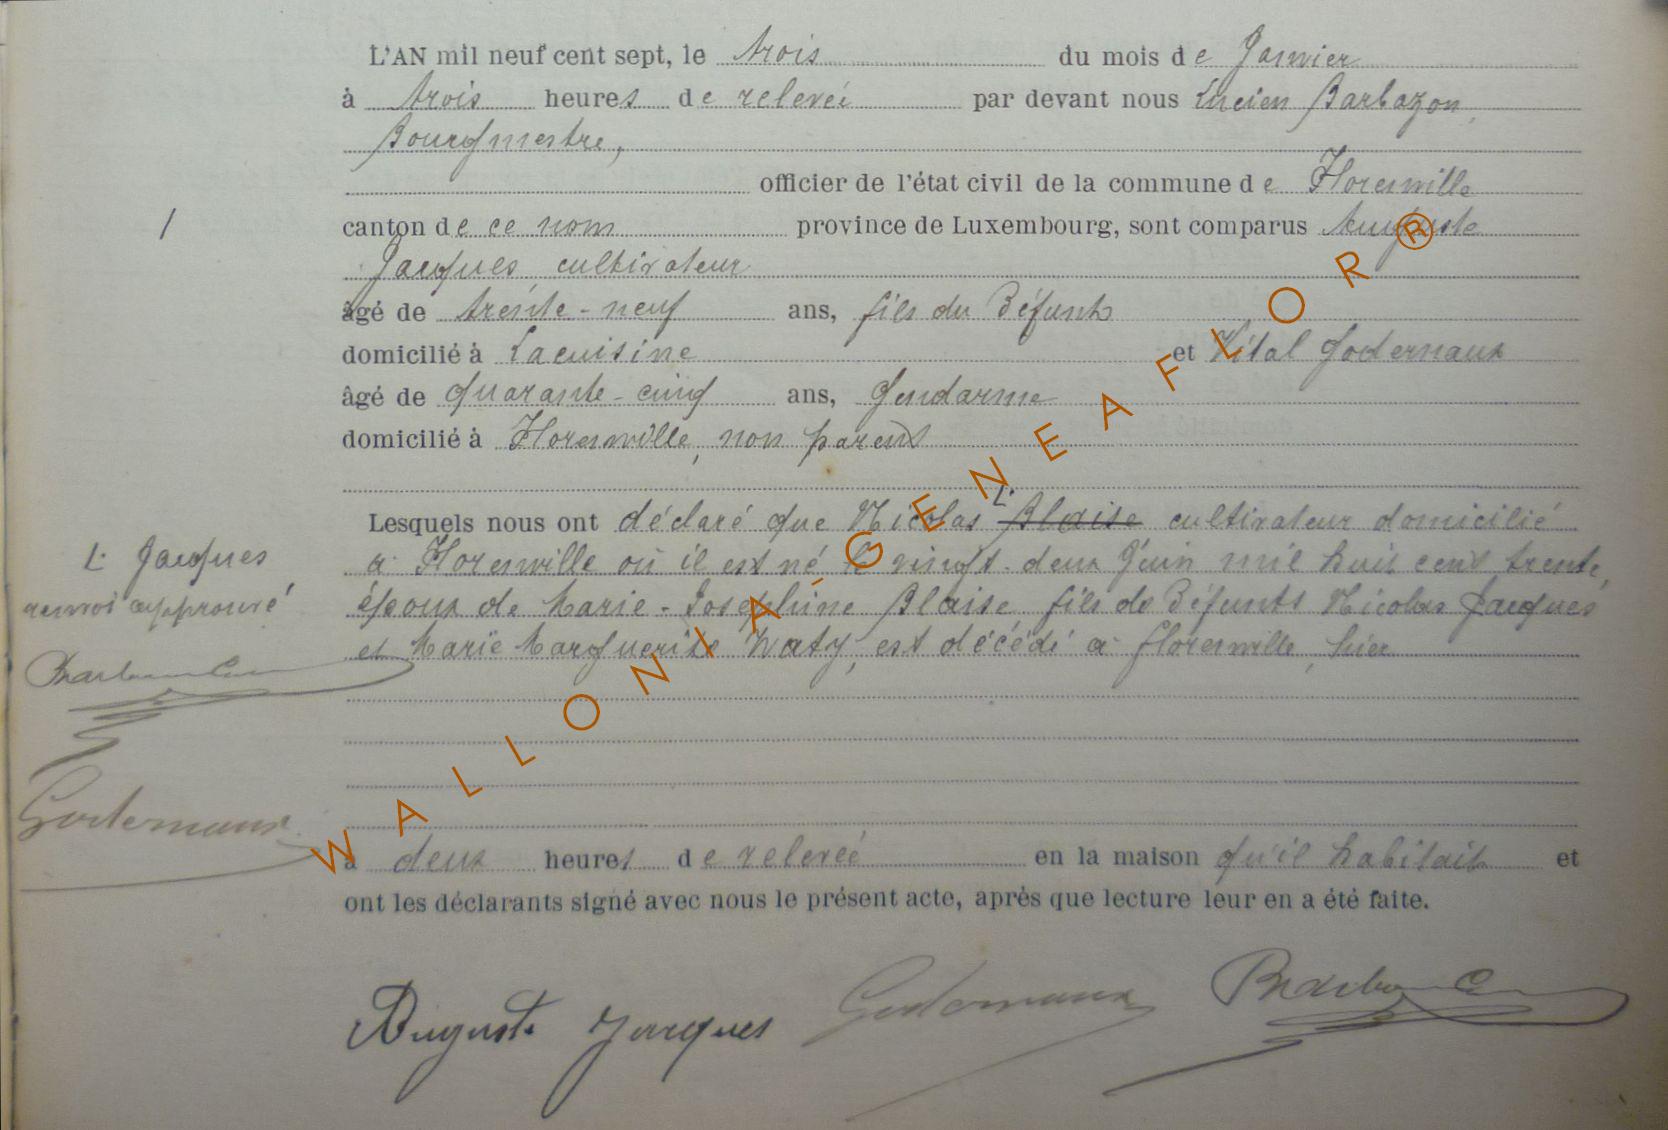 L'AN mil neuf cent sept, le trois du mois de Janvier
à trois heures de relevée par devant nous Lucien Barbazon,
Bourgmestre,
officier de l'état civil de la commune de Florenville
1
canton de ce nom province de Luxembourg, sont comparus Auguste
Jacques cultivateur
âgé de trente-neuf ans, fils du Défunt
domicilié à Lacuisine et Vital Godernaux
âgé de quarante-cinq ans, Gendarme
domicilié à Florenville, non parent
L.
Lesquels nous ont déclaré que Nicolas Blaise cultivateur domicilié
à Florenville où il est né le vingt-deux Juin mil huit cent trente,
époux de Marie-Joséphine Blaise fils de Défunts Nicolas Jacques
et Marie Marguerite Waty, est décédé à Florenville, hier
L. Jacques
renvoi approuvé
Godernaux
à deux heures de relevée en la maison qu'il habitait et
ont les déclarants signé avec nous le présent acte, après que lecture leur en a été faite.
Auguste Jacques Godernaux Barbazon
WALLONIA-GENEAFLOR®